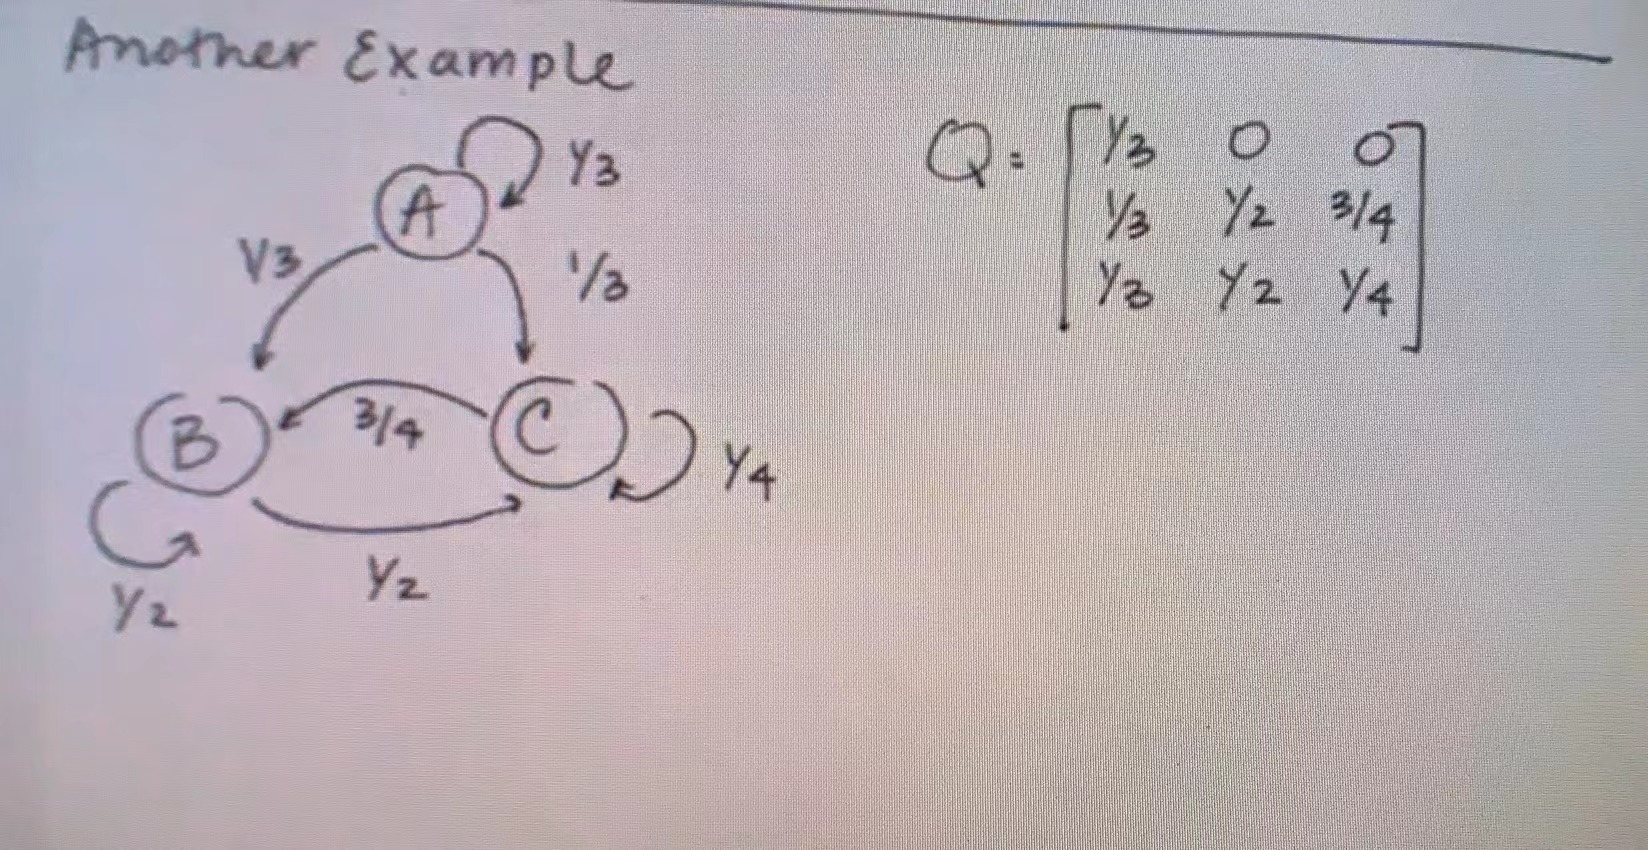 Another Example
1/3
A
1/3
1/3
B
3/4
C
1/4
1/2
1/2
Q = 1/3 0 0
1/3 1/2 3/4
1/3 1/2 1/4